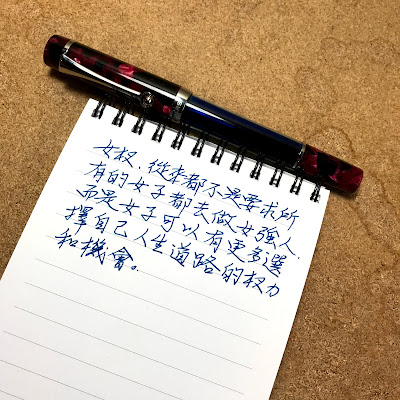 女权,從來都不是要求所
有的女子都去做女強人.
而是女子可以有更多選
擇自己人生道路的权力
和機會。